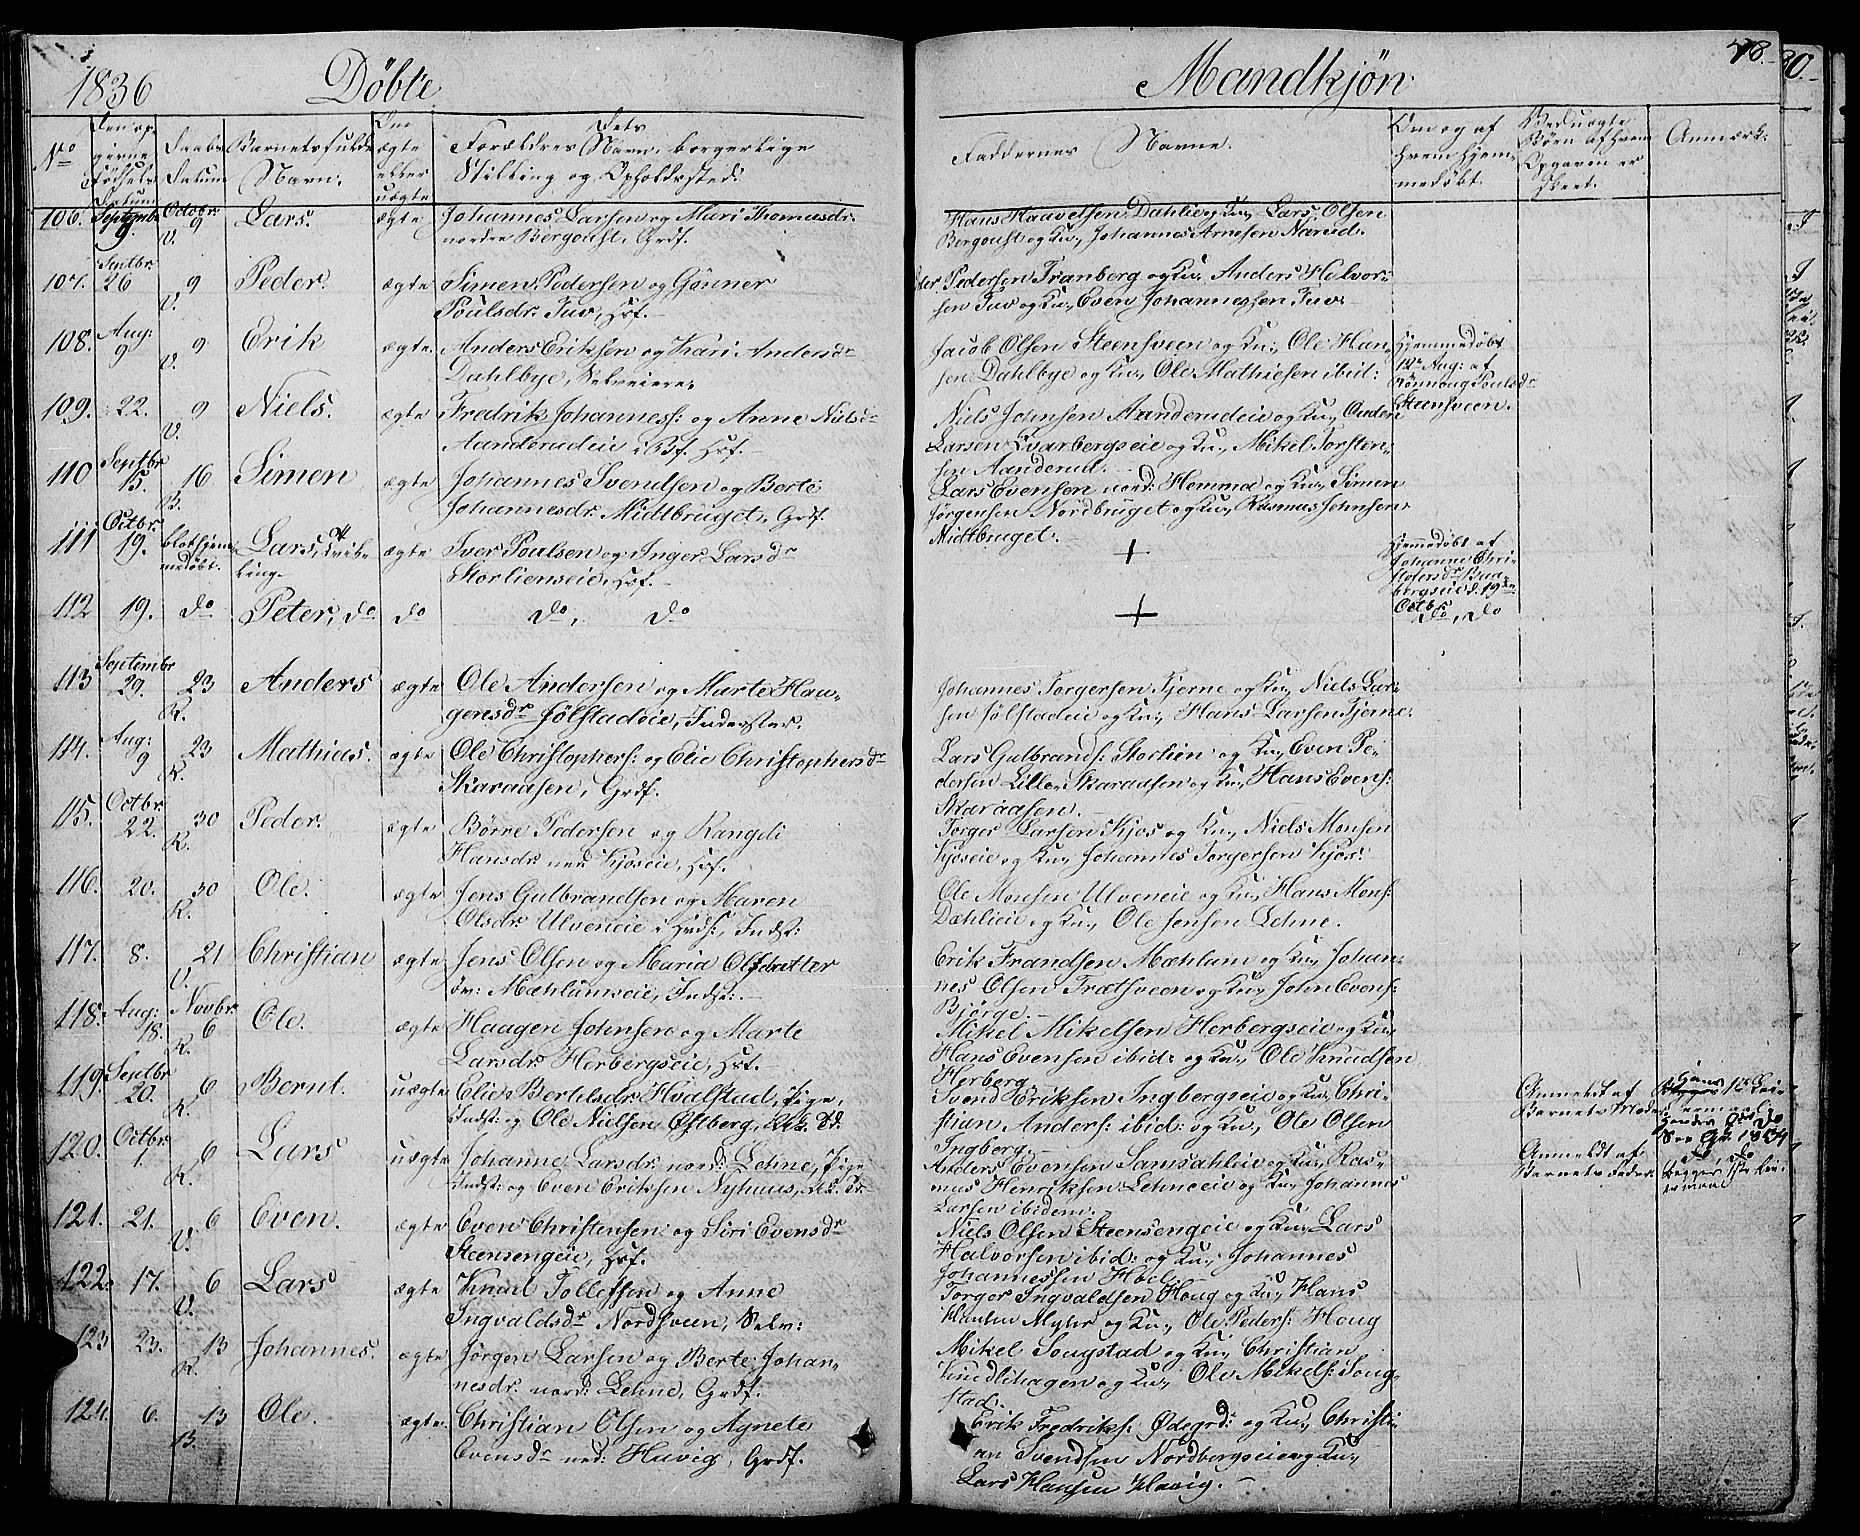 1836 Døbte Mandkjøn 78.
No
Den op-
givne
Fødsels
Datum
Daabs
Datum
Barnets fulde
Navn.
Om
ægte
eller
uægte
Forældres Navn, borgerlige
Stilling og Opholdssted.
Faddernes Navne.
Om og af
hvem hjem-
medøbt.
Ved uægte
Børn af hvem
Opgaven er
skeet.
Anmærk:
106. Septembr 9. Octobr 9 V. Lars. ægte
Johannes Larsen og Mari Thomasdr.
nordre Bergoust, Grdf.
Hans Haavelsen Dahlie og Ku., Lars Olsen
Bergoust og Ku., Johannes Arnesen Narud.
107. Septbr. 26 9 V. Peder. ægte
Simen Pedersen og Gønner
Poulsdr. Tuv, Hsf.
Pedersen Tranberg og Ku., Anders Halvor-
sen Tuv og Ku., Even Johannessen Tuv.
108. Aug: 9 9 V. Erik ægte.
Anders Eriksen og Kari Andersdr
Dahlbye, Selveiere.
Jacob Olsen Steensveen og Ku., Ole Han-
sen Dahlbye og Ku., Ole Mathiesen ibid:
Hjemmedøbt
12te Aug: af
Rønnaug Poulsdr
Steensveen.
109. 22. 9 V. Niels. ægte
Fredrik Johanness: og Anne Nielsdr
Aanderudeie i Bf. Hsf.
Niels Johnsen Aanderudeie og Ku.,
Larsen Qvarbergseie og Ku., Mikel Torsten-
sen Aanderud.
110 Septbr 15. 16 B. Simen ægte
Johannes Svendsen og Berte
Johannesdr. Midtbruget, Grdf.
Lars Evensen nord: Hemma og Ku., Simen
Jørgensen Nordbruget og Ku., Rasmus Johnsen
Midtbruget.
111 Octbr. 19. blot hjem-
medøbt. Lars, Tvil-
ling. ægte
Iver Poulsen og Inger Larsdr
Storlienseie, Hsf.
+
Hjemmedøbt af
Johanne Chri-
stofersdr Baa-
bergseie d. 19de
Octbr.
112 19. do Peter, do. do do, do + do, do
113 Septembr 29. 23 R. Anders ægte
Ole Andersen og Marte Haa-
gensdr Jølstadeie, Inderster.
Johannes Torgersen Tjerne og Ku., Niels Lar-
sen Jølstadeie og Ku., Hans Larsen Tjerne.
114. Aug: 9 23 R. Mathias. ægte
Ole Christophers: og Elie Christophersdr
Skaraasen, Grdf.
Lars Gulbrands: Storlien og Ku., Even Pe-
dersen Lille-Skaraasen og Ku., Hans Evens:
Skaraasen.
115. Octbr 22. 30 R. Peder. ægte
Børre Pedersen og Rangdi
Hansdr. Kjoseie, Hsf.
Torger Larsen Kjos og Ku., Niels Monsen
Kjoseie og Ku., Johannes Torgersen Kjos.
116. 20. 30 R. Ole. ægte
Jens Gulbrandsen og Maren
Olsdr. Ulveneie i Hrds:, Indst:
Ole Monsen Ulveneie og Ku., Hans Mons:
Dæhlieie og Ku., Ole Jensen Lehne.
117. 8. 21 V. Christian ægte
Jens Olsen og Maria Olsdatter
Mæhlumseie, Indst:
Erik Frandsen Mæhlum og Ku., Johan-
nes Olsen Trætsveen og Ku., John Evens:
Bjørge.
118. Aug: 18. Novbr. 6 R. Ole. ægte
Haagen Johnsen og Marte
Larsdr. Herbergseie, Hsf.
Mikel Mikelsen Herbergseie og Ku.,
Hans Evensen ibid: og Ku., Ole Knudsen
Herberg.
119. Septbr 20. 6 R. Bernt. uægte
Elie Bertelsdr. Hvalstad, Pige,
Indst: og Ole Nielsen Østberg,
Svend Eriksen Ingbergseie og Ku., Chri-
stian Anders: ibid: og Ku., Ole Olsen
Ingberg.
Anmeldt af
Barnets Moder
120. Octbr. 1. 6 R. Lars uægte
Johanne Larsdr. nord: Lehne, Pige
Indst: og Even Eriksen Nyhuus,
Anders Evensen Samsahleie og Ku., Ras-
mus Henriksen Lehneeie og Ku., Johannes
Larsen ibidem.
Anmeldt af
Barnets Fader
121. 21. 6 V. Even. ægte
Even Christensen og Siri Evensdr
Steensengeie, Hsf.
Niels Olsen Steensengeie og Ku., Lars
Halvorsen ibid: og Ku., Johannes
Johannessen Hoel.
122. 17. 6 V. Lars ægte
Knud Tollefsen og Anne
Ingvaldsdr Nordsveen, Selv:
Torger Ingvaldsen Houg og Ku., Hans
Hansen Myhr og Ku., Ole Peders: Houg
123 23. 13 R. Johannes. ægte
Jørgen Larsen og Berte Johan-
nesdr. nord: Lehne, Grdf.
Mikel Sougstad og Ku., Christian
Kindlihagen og Ku., Ole Mikels: Soug-
stad.
124. 6. 13 B. Ole. ægte.
Christian Olsen og Agnete
Evensdr ned: Huvig, Grdf.
Erik Fredriks: Ødegrd: og Ku., Christi-
an Svendsen Nordbergseie og Ku.,
Lars Hansen Havig.